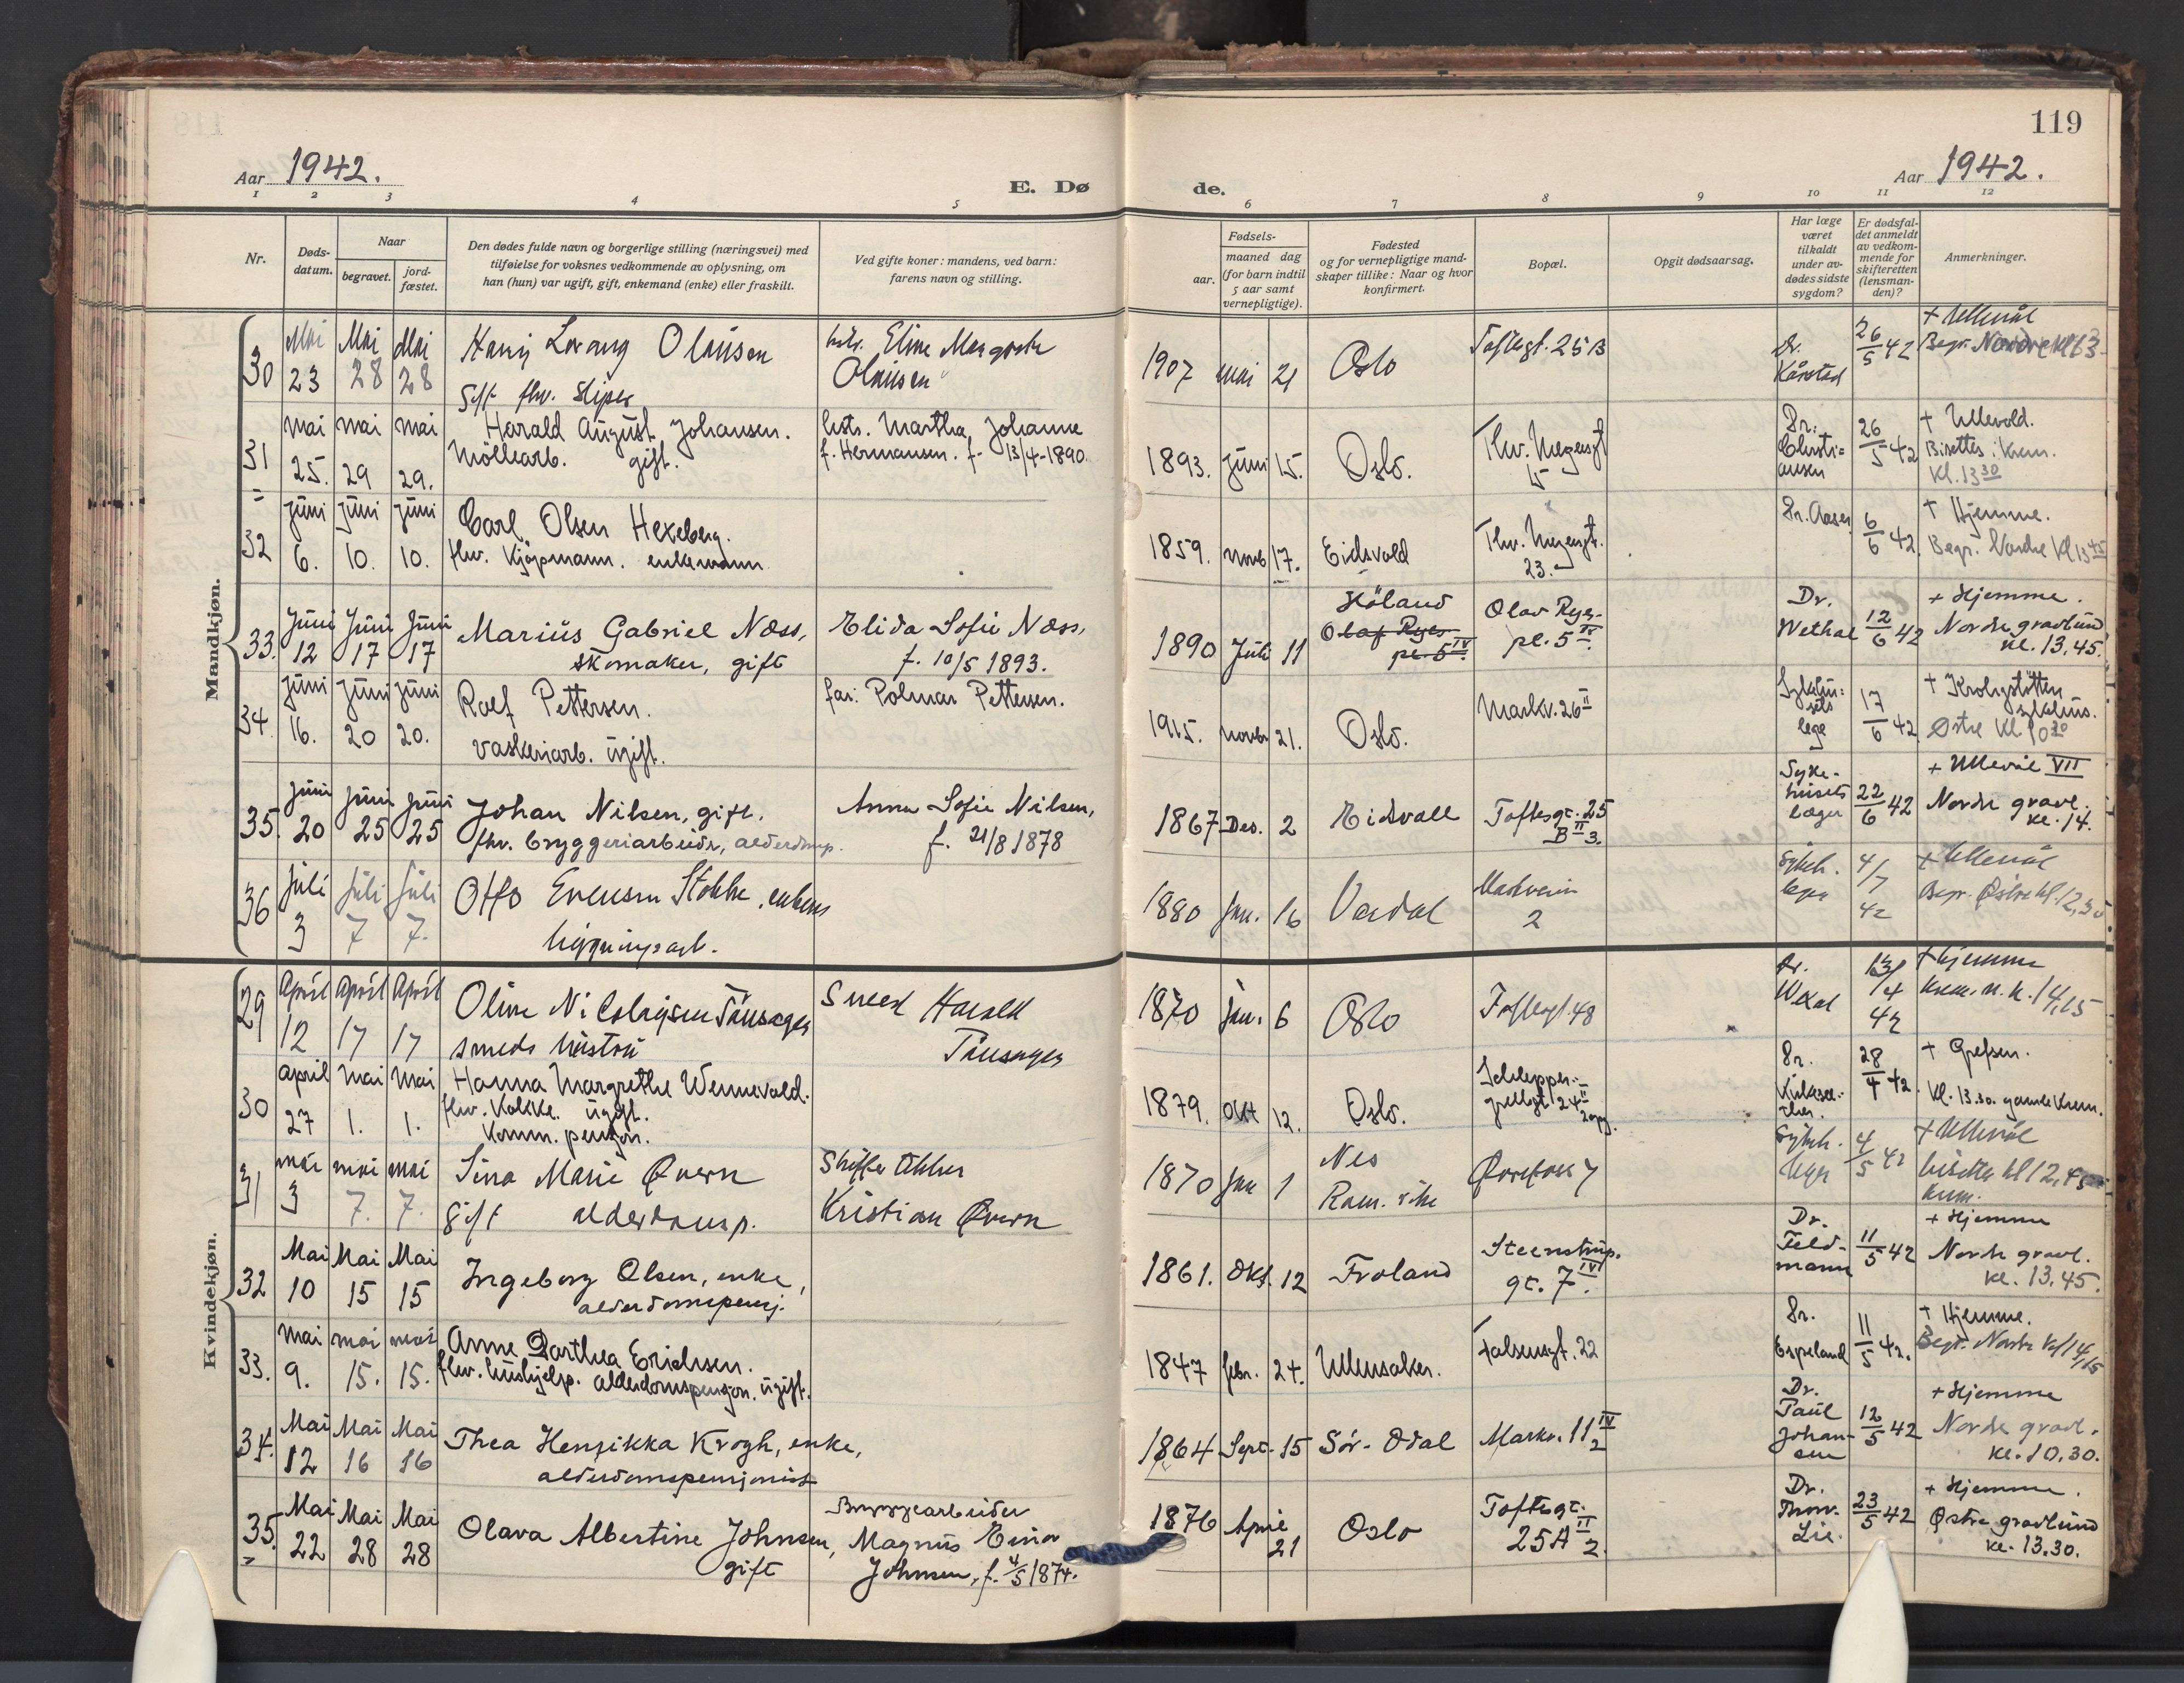 119
Aar 1942.
E. Dø
de.
Aar 1942.
1 2 3 4 5 6 7 8 9 10 11 12
Nr.
Døds-
datum.
Naar
begravet.
jord-
fæstet.
Den dødes fulde navn og borgerlige stilling (næringsvei) med
tilføielse for voksnes vedkommende av oplysning, om
han (hun) var ugift, gift, enkemand (enke) eller fraskilt.
Ved gifte koner: mandens, ved barn:
farens navn og stilling.
Fødsels-
aar.
maaned dag
(for barn indtil
5 aar samt
vernepligtige).
Fødested
og for vernepligtige mand-
skaper tillike: Naar og hvor
konfirmert.
Bopæl.
Opgit dødsaarsag.
Har læge
været
tilkaldt
under av-
dødes sidste
sygdom?
Er dødsfal-
det anmeldt
av vedkom-
mende for
skifteretten
(lensman-
den)?
Anmerkninger.
Mandkjøn.
30 Mai 23 Mai 28 Mai 28
Olausen
gift fhv. sliper
Eline Margrethe
Olausen
1907 mai 21 Oslo Toftesgt. 25 B
Dr.
Kårstad
26/5 42
+ Ullevål
Begr. Nordre kl 13
31 mai 25. mai 29 mai 29.
Harald August Johansen.
Möllearb. gift.
hstr. Martha Johanne
f. Hermansen. f. 13/4-1890.
1893. juni 15. Oslo. Thv. Meyersgt
15
Dr.
Christi=
ansen
26/5 42
+ Ullevold.
Bisettes i Krem.
Kl. 13 30
32 juni 6. juni 10. juni 10.
Carl Olsen Hexeberg.
fhv. Kjøpmann. enkemann
1859. novb 17. Eidsvold Thv. Meyersgt.
23.
Dr. Aaser
6/6 42.
+ Hjemme.
Begr. Nordre Kl 13 45
33. Juni 12 Juni 17 Juni 17
Marius Gabriel Næss,
skomaker, gift
Elida Sofie Næss,
f. 10/5 1893.
1890 Juli 11
Höland
Olaf Ryes
pl. 5 IV
Olav Ryes
pl. 5 IV
Dr.
Wethal
12/6 42
+ Hjemme.
Nordre gravlund
kl. 13.45.
34. juni 16. juni 20 juni 20.
Rolf Pettersen.
vaskeriarb. ugift.
far: Polmar Pettersen.
1915. novbr 21. Oslo. Markv. 26 II
lege
17/6 42
+ Krohgstötten
sykehus.
Østre Kl. 10 30
35. Juni 20 Juni 25 Juni 25
Johan Nilsen, gift.
fhv. bryggeriarbeider, alderdomsp.
Anna Sofie Nilsen,
f. 21/8 1878
1867 Des. 2 Eidsvoll Toftesgt. 25
B II 3.
Syke-
husets
læger
22/6 42
+ Ullevål VII
Nordre gravl.
kl. 14.
36 juli 3 juli 7 juli 7.
Otto Evensen Stokke,
ligningsarb.
1880 Jan. 16 Vardal
2
Sykeh.
leger
4/7
42
+ Ullevål
Begr. Østre kl. 12,30
Kvindekjøn.
29 April 12 April 17 April 17
Oline Nicolaysen Tausager
smeds hustru
Smed Harald
Tausager
1870 jan. 6 Oslo Toftesgt 48
Dr.
13/4
42
+ hjemme
krem. n. k. 14,15
30 april 27 mai 1. mai 1.
Hanna Margrethe Wennevold.
fhv. Kokke. ugift.
Komm. pensjon.
1879. okt 12. Oslo. Schleppe-
grellsgt 24 II
2 opg.
Dr.
28/4 42
+ Grefsen.
Kl. 13.30. gamle Krem.
31 mai 3 mai 7. mai 7.
Sina Marie Qvern
gift alderdomsp.
Kristian Qvern
1870 jan 1
Nes
Rom. rike
Qvrefoss 7
Sykeh.
leger
4/5 42
+ Ullevål
bisettes kl 12,45
krem.
32 Mai 10 Mai 15 Mai 15
Ingeborg Olsen, enke,
alderdomspensj.
1861. Okt. 12 Froland Steenstrup.
gt. 7 IV.
Dr.
Feld-
mann
11/5 42
+ Hjemme
Nordre gravl.
kl. 13.45.
33. mai 9. mai 15. mai 15.
Anne Darthea Erichsen.
fhv. hushjelp. alderdomspensjon. ugift.
1847 febr. 24. Ullensaker. Falsensgt. 22
Dr.
Espeland
11/5 42.
+ Hjemme.
Begr. Nordre Kl 14,15
34. Mai 12 Mai 16 Mai 16
Thea Henrikka Krogh, enke,
alderdomspensjonist
1864 Sept. 15 Sör-Odal Markv. 11 IV
2
Dr.
Paul
Johan-
sen
12/5 42
+ Hjemme
Nordre gravl.
kl. 10.30.
35. Mai 22 Mai 28 Mai 28
Olava Albertine Johnsen,
gift
Bryggearbeider
Magnus Einar
Johnsen, f. 4/5 1874.
1876 April 21 Oslo Toftesgt.
25A II 2.
Dr.
Thorv.
Lie.
23/5 42
+ Hjemme.
Östre gravlund
kl. 13.30.